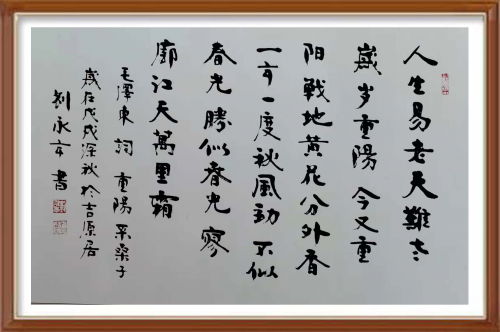 人生易老天難老
歲岁重陽今又重
阳戰地黄花分外香
一年一度秋風劲不似
春光勝似春光寥
廓江天萬里霜
毛澤東詞重陽采桑子
歲在戊戌深秋於吉原居
刘永 書